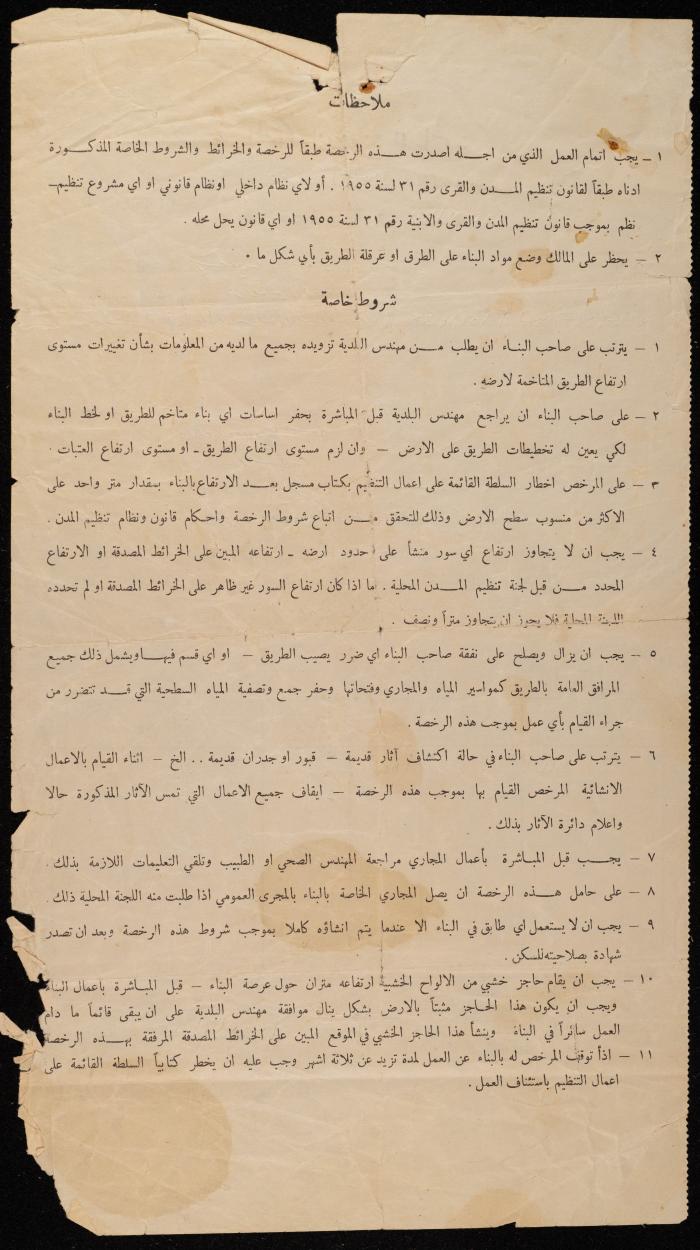 ملاحظات
١ – يجب اتمام العمل الذي من اجله اصدرت هذه الرخصة طبقاً للرخصة والخرائط والشروط الخاصة المذكورة
ادناه طبقاً لقانون تنظيم المدن والقرى رقم ٣١ لسنة ١٩٥٥ . أو لاي نظام داخلي اونظام قانوني او اي مشروع تنظيم
نظم بموجب قانون تنظيم المدن والقرى والابنية رقم ٣١ لسنة ١٩٥٥ او اي قانون يحل محله .
٢ – يحظر على المالك وضع مواد البناء على الطرق او عرقلة الطريق بأي شكل ما .
شروط خاصة
١ – يترتب على صاحب البناء ان يطلب من مهندس البلدية تزويده بجميع ما لديه من المعلومات بشأن تغييرات مستوى
ارتفاع الطريق المتاخمة لارضه .
٢ – على صاحب البناء ان يراجع مهندس البلدية قبل المباشرة بحفر اساسات اي بناء متاخم للطريق او لخط البناء
لكي يعين له تخطيطات الطريق على الارض – وان لزم مستوى ارتفاع الطريق – او مستوى ارتفاع العتبات .
٣ – على المرخص اخطار السلطة القائمة على اعمال التنظيم بكتاب مسجل بعد الارتفاع بالبناء بمقدار متر واحد على
الاكثر من منسوب سطح الارض وذلك للتحقق من اتباع شروط الرخصة واحكام قانون ونظام تنظيم المدن .
٤ – يجب ان لا يتجاوز ارتفاع اي سور منشأ على حدود ارضه – ارتفاعه المبين على الخرائط المصدقة او الارتفاع
المحدد من قبل لجنة تنظيم المدن المحلية . اما اذا كان ارتفاع السور غير ظاهر على الخرائط المصدقة او لم تحدده
اللجنة المحلية فلا يجوز ان يتجاوز متراً ونصف .
٥ – يجب ان يزال ويصلح على نفقة صاحب البناء اي ضرر يصيب الطريق – او اي قسم فيها ويشمل ذلك جميع
المرافق العامة بالطريق كمواسير المياه والمجاري وفتحاتها وحفر جمع وتصفية المياه السطحية التي قد تتضرر من
جراء القيام بأي عمل بموجب هذه الرخصة .
٦ – يترتب على صاحب البناء في حالة اكتشاف آثار قديمة – قبور او جدران قديمة .. الخ – اثناء القيام بالاعمال
الانشائية المرخص القيام بها بموجب هذه الرخصة – ايقاف جميع الاعمال التي تمس الآثار المذكورة حالا
واعلام دائرة الآثار بذلك .
٧ – يجب قبل المباشرة بأعمال المجاري مراجعة المهندس الصحي او الطبيب وتلقي التعليمات اللازمة بذلك .
٨ – على حامل هذه الرخصة ان يصل المجاري الخاصة بالبناء بالمجرى العمومي اذا طلبت منه اللجنة المحلية ذلك .
٩ – يجب ان لا يستعمل اي طابق في البناء الا عندما يتم انشاؤه كاملا بموجب شروط هذه الرخصة وبعد ان تصدر
شهادة بصلاحيته للسكن .
١٠ – يجب ان يقام حاجز خشبي من الالواح الخشبية ارتفاعه متران حول عرصة البناء – قبل المباشرة باعمال البناء
ويجب ان يكون هذا الحاجز مثبتاً بالارض بشكل ينال موافقة مهندس البلدية على ان يبقى قائماً ما دام
العمل سائراً في البناء وينشأ هذا الحاجز الخشبي في الموقع المبين على الخرائط المصدقة المرفقة بهذه الرخصة
١١ – اذا توقف المرخص له بالبناء عن العمل لمدة تزيد عن ثلاثة اشهر وجب عليه ان يخطر كتابياً السلطة القائمة على
اعمال التنظيم باستئناف العمل .